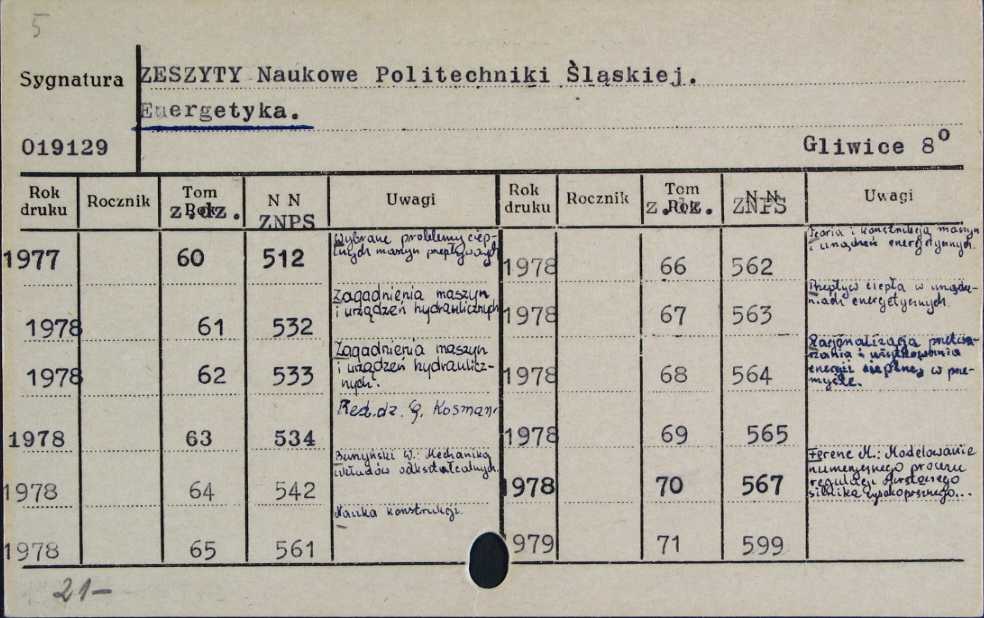 5
Sygnatura
ZESZYTY Naukowe Politechniki Śląskiej.
Energetyka.
019129
Gliwice 8°
Rok druku Rocznik Tom Rok z.dz. N N ZNPS Uwagi
1977 60 512 Wybrane problemy ciep-
lnych maszyn przepływowych
1978 61 532 Zagadnienia maszyn
i urządzeń hydraulicznych
1978 62 533 Zagadnienia maszyn
i urządzeń hydraulicz-
nych.
1978 63 534 Red.dz. G. Kosman
1978 64 542 W.: Mechanika
układów odkształcalnych.
1978 65 561 Nauka konstrukcji.
Rok druku Rocznik Tom Rok z.dz. N N ZNPS Uwagi
1978 66 562 Teoria i konstrukcja maszyn
i urządzeń energetycznych.
1978 67 563 Przepływ ciepła w urządze-
niach energetycznych.
1978 68 564 Racjonalizacja przetwa-
rzania i użytkowania
energii cieplnej w prze-
myśle.
1978 69 565
1978 70 567 Ferenc M.: Modelowanie
numerycznego procesu
regulacji
silnika wysokoprężnego...
1979 71 599
21-